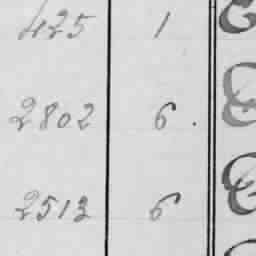 425 1
2802 6.
2513 6